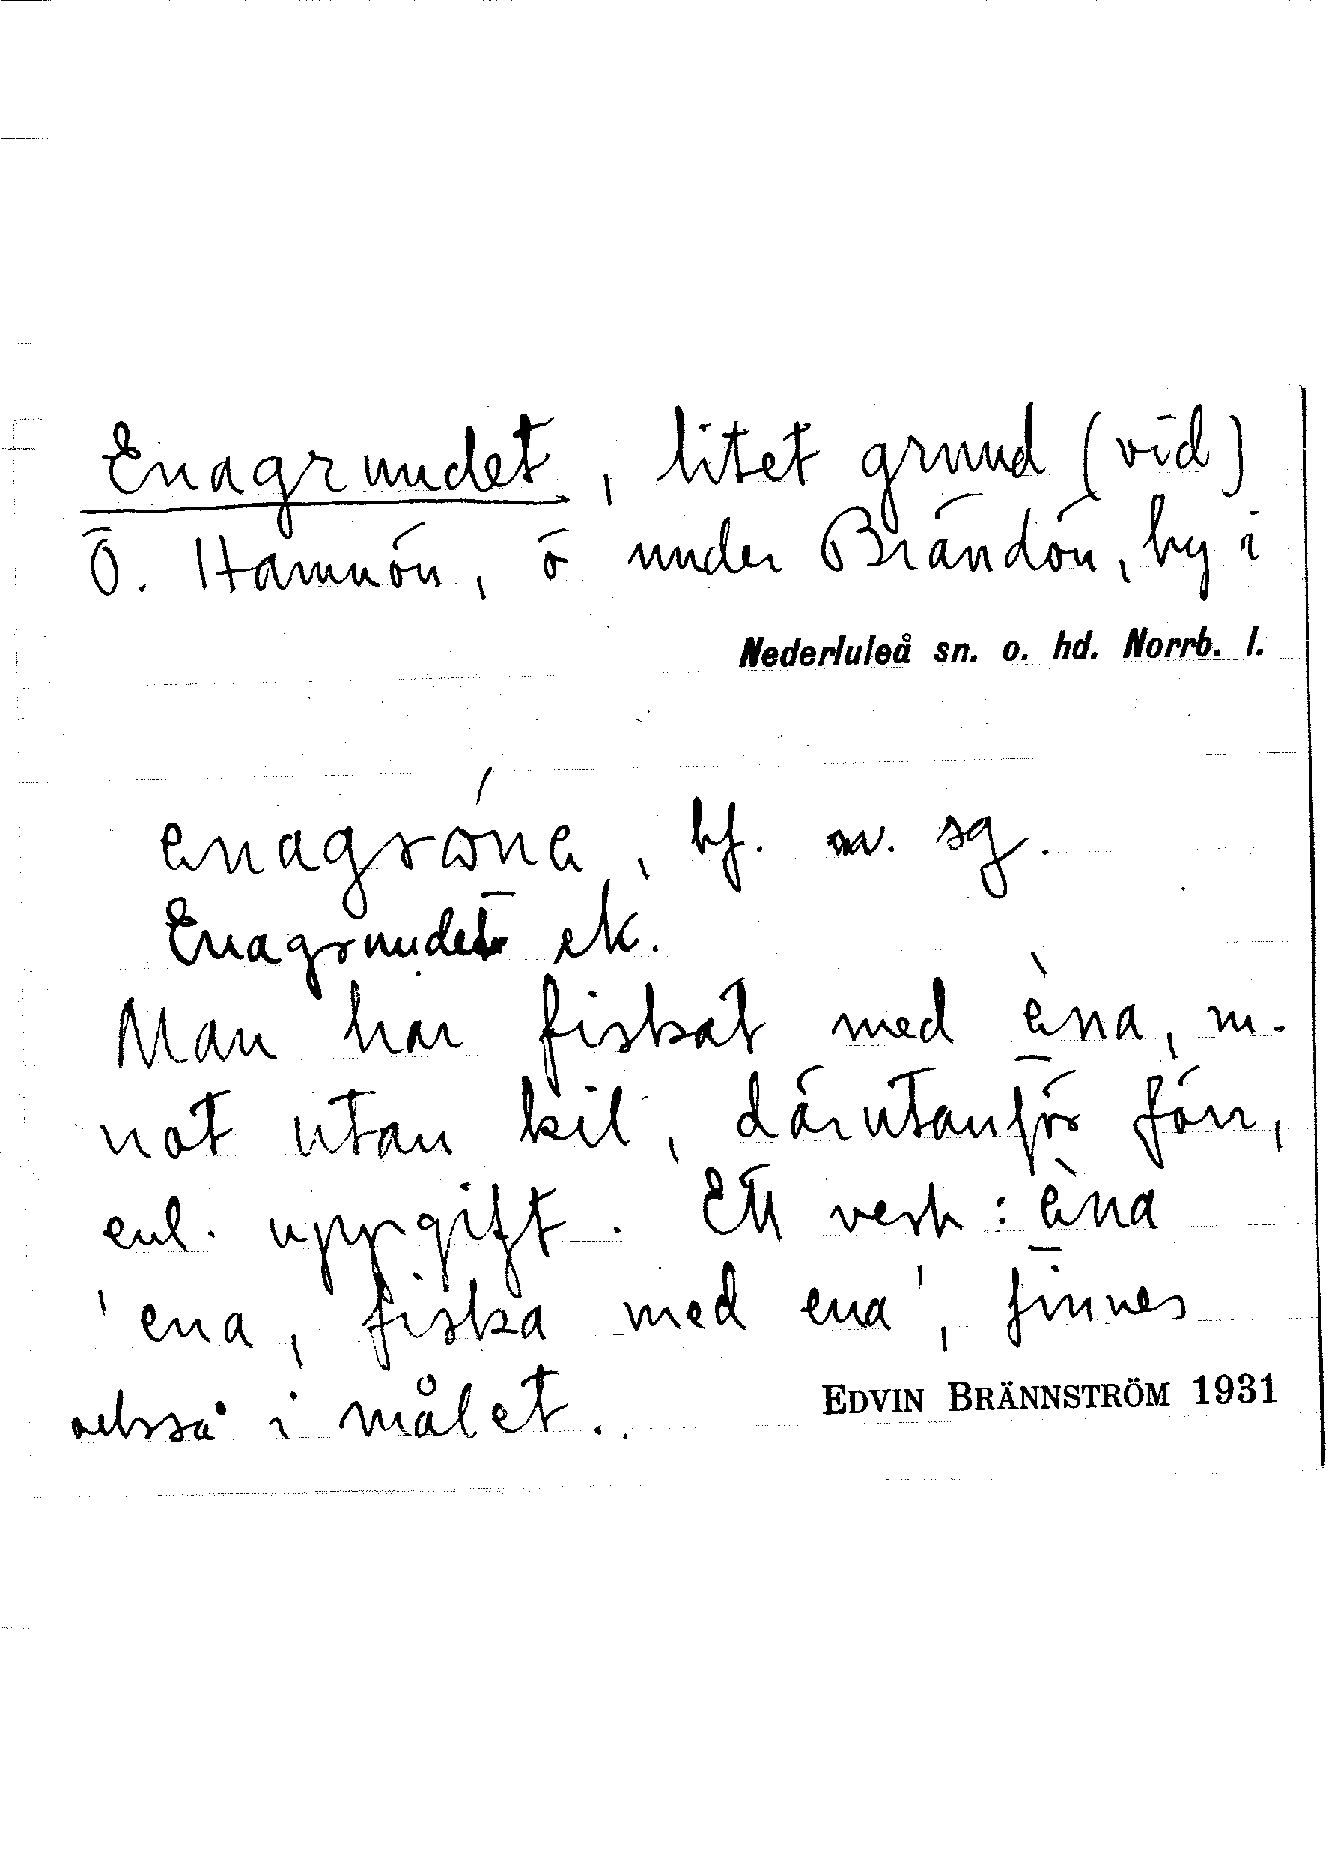 Enagrundet, litet grund (vid)
Ö. Hamnön, ö under Brändön, by i
Nederluleå sn. o. hd. Norrb. l.
enagrɷ́ne, bf. n. sg.
Enagrundet ek.
Man har fiskat med èna, m.
not utan kil, därutanför förr,
enl. uppgift. Ett verb: èna
'ena, fiska med ena', finnes
också i målet.
EDVIN BRÄNNSTRÖM 1931